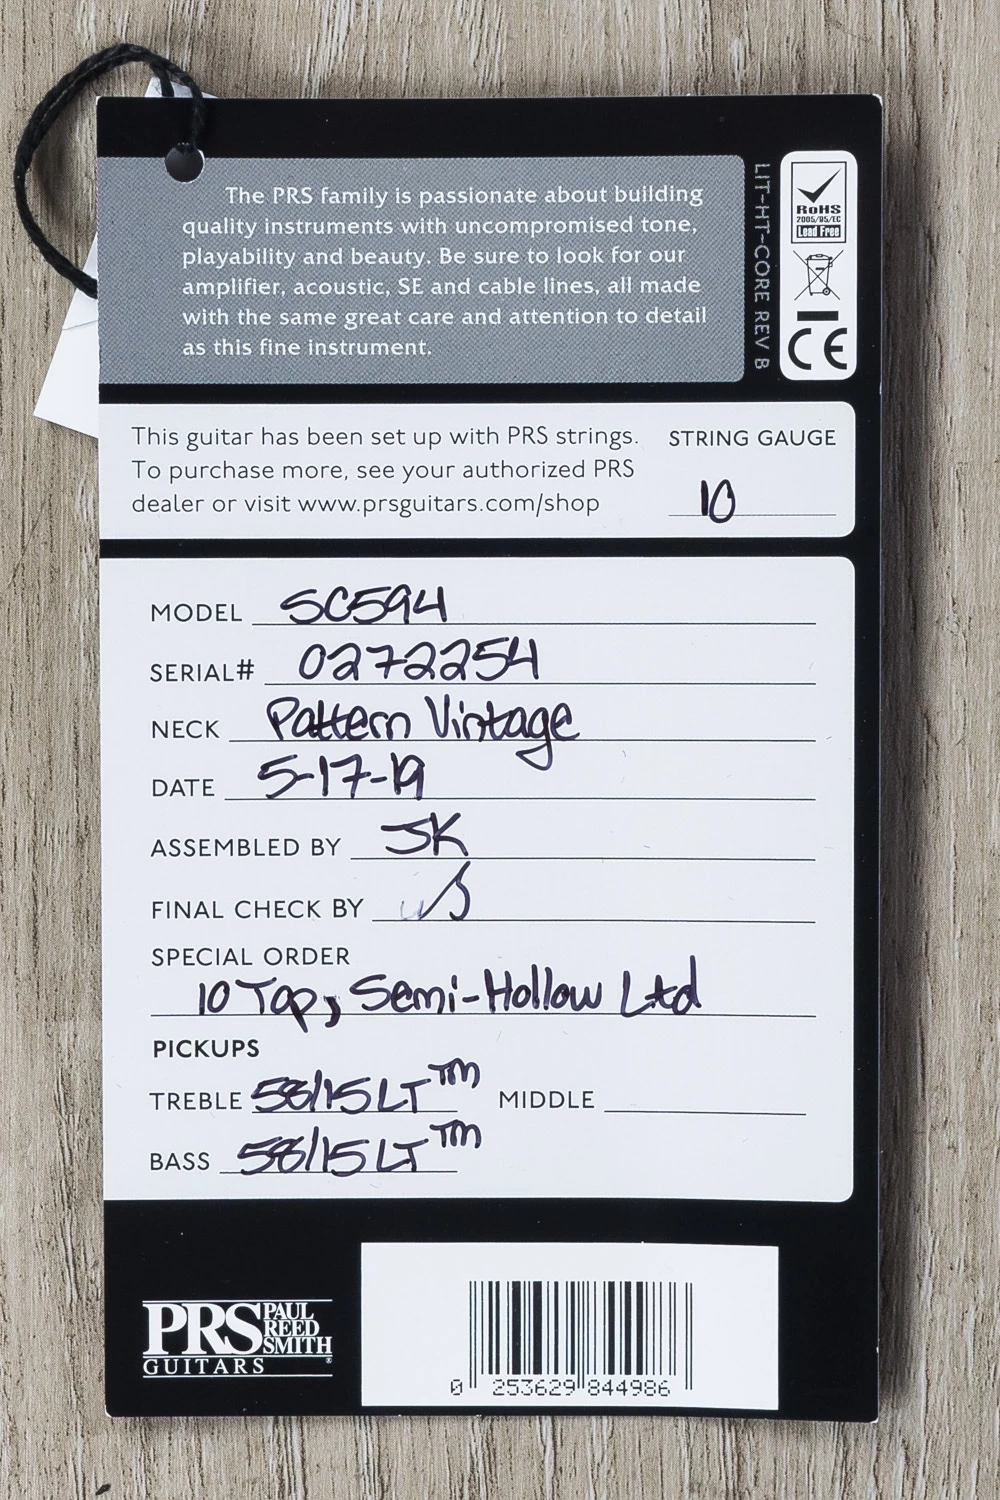 The PRS family is passionate about building
quality instruments with uncompromised tone,
playability and beauty. Be sure to look for our
amplifier, acoustic, SE and cable lines, all made
with the same great care and attention to detail
as this fine instrument.
LIT-HT-CORE REV B
RoHS
2005/95/EC
Lead Free
CE
This guitar has been set up with PRS strings.
To purchase more, see your authorized PRS
dealer or visit www.prsguitars.com/shop
STRING GAUGE
10
MODEL SC594
SERIAL# 0272254
NECK Pattern Vintage
DATE 5-17-19
ASSEMBLED BY JK
FINAL CHECK BY
SPECIAL ORDER
10 Top, Semi-Hollow Ltd
PICKUPS
TREBLE 58/15 LT™ MIDDLE
BASS 58/15 LT™
PRS PAUL REED SMITH
GUITARS ®
0 253629 844986